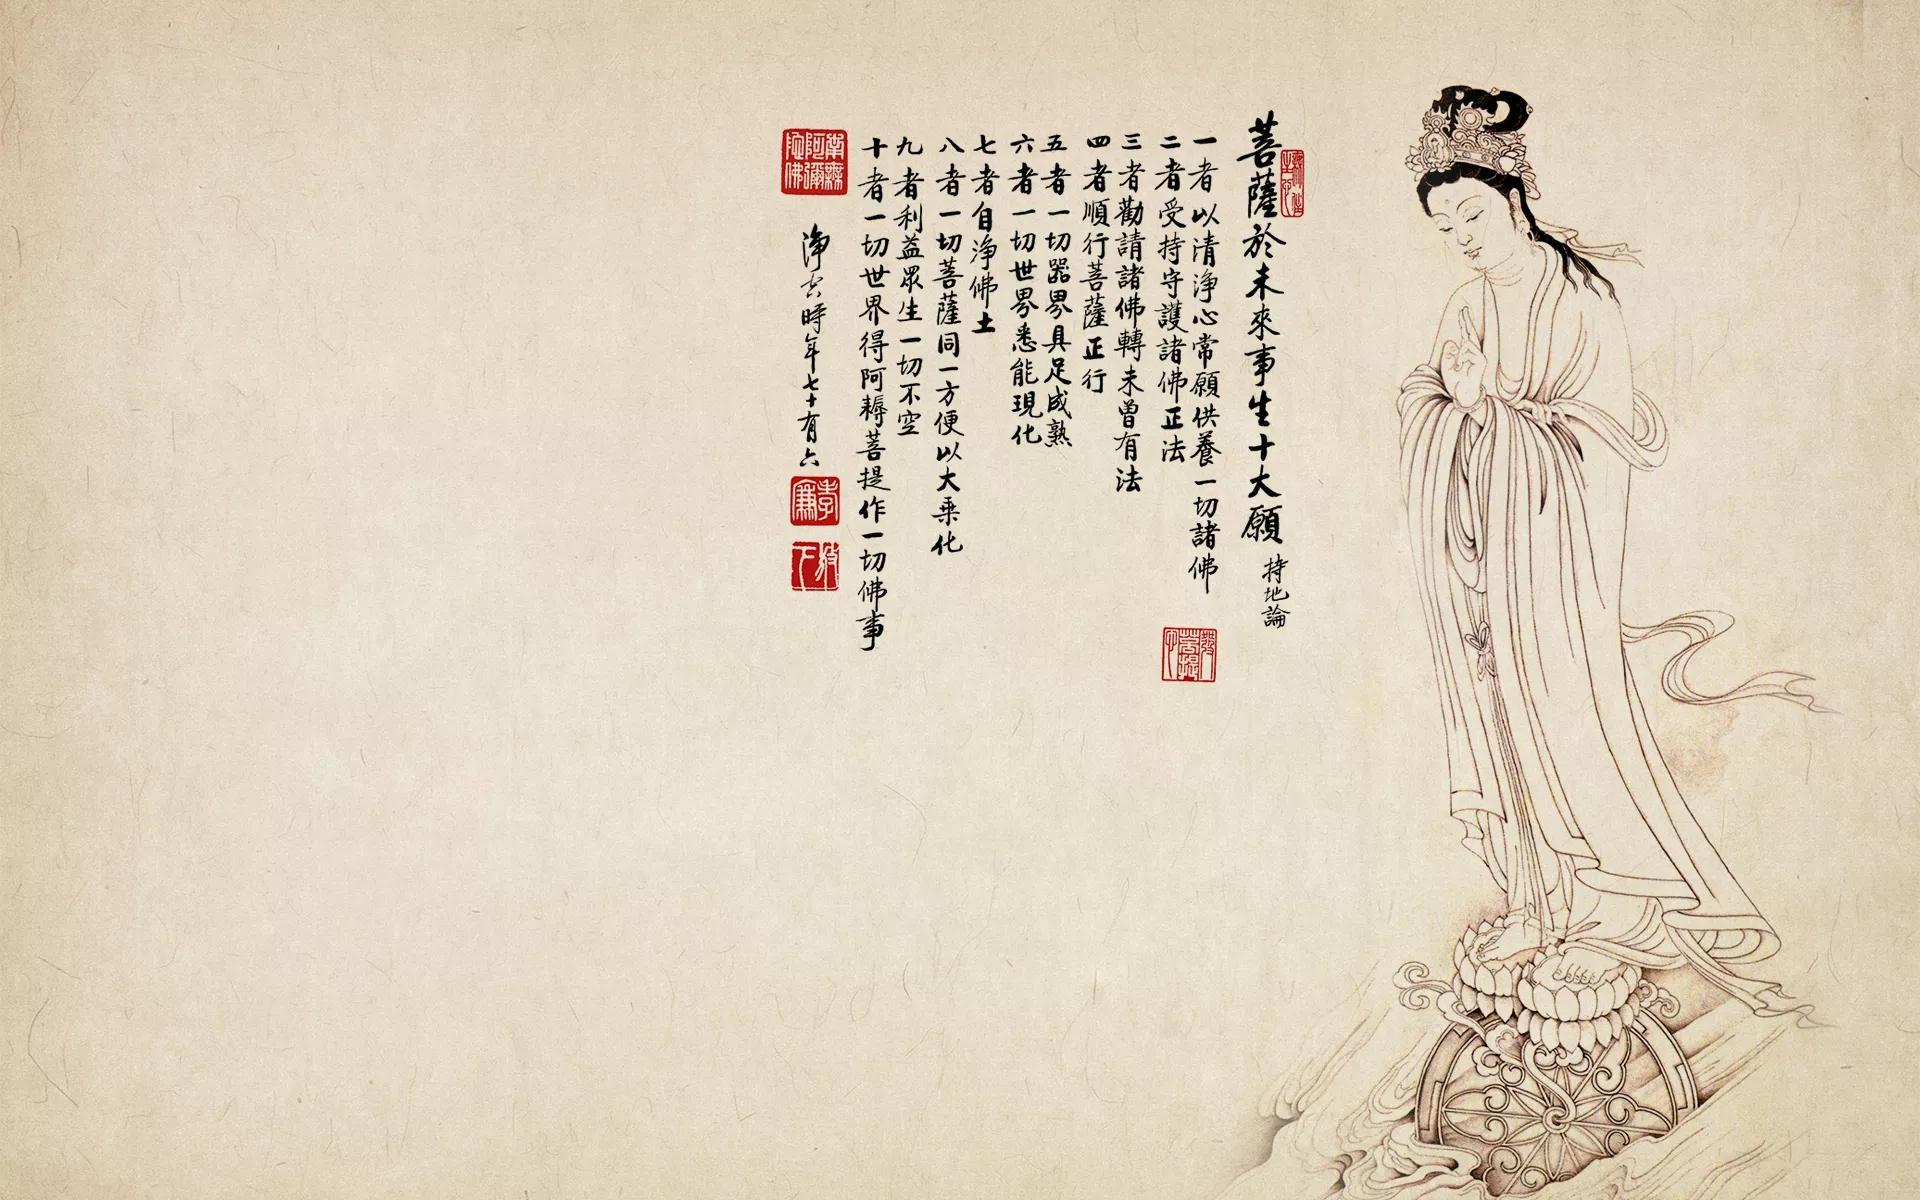 菩薩於未來事生十大願 持地論
一者以清淨心常願供養一切諸佛
二者受持守護諸佛正法
三者勸請諸佛轉未曾有法
四者順行菩薩正行
五者一切器界具足成熟
六者一切世界悉能現化
七者自淨佛土
八者一切菩薩同一方便以大乘化
九者利益眾生一切不空
十者一切世界得阿耨菩提作一切佛事
淨空時年七十有六
南無阿彌陀佛